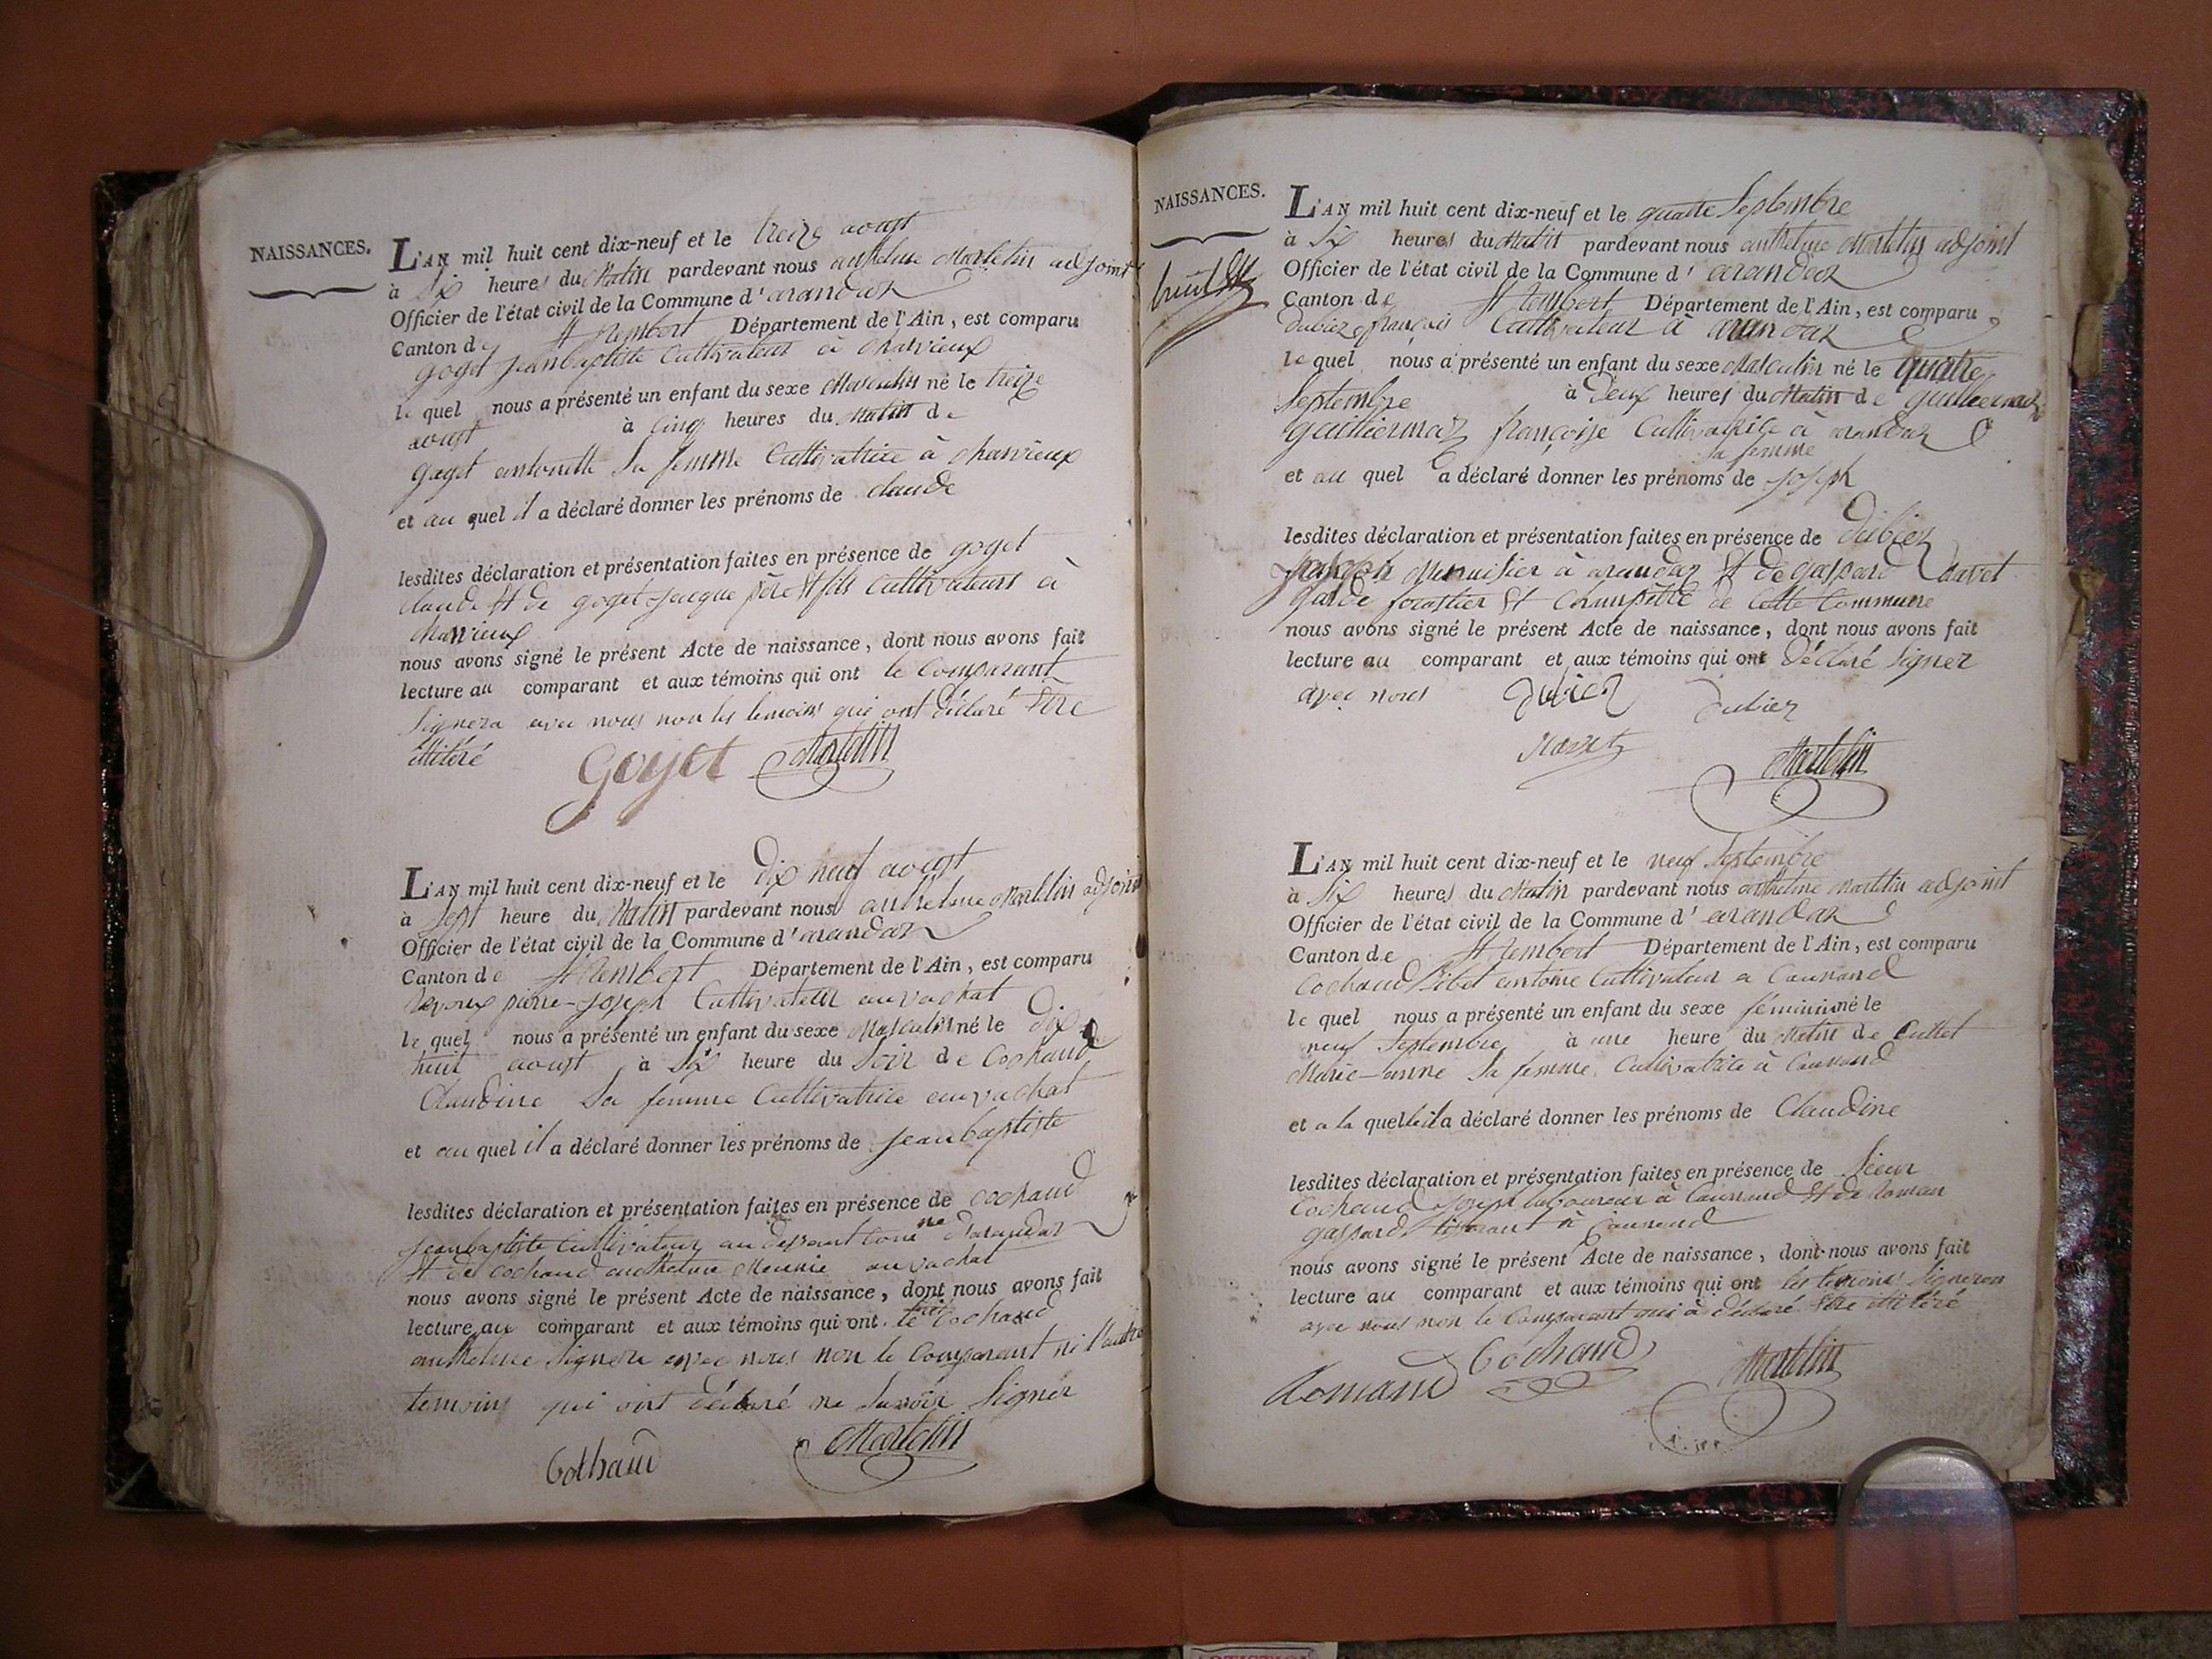 NAISSANCES.
L'AN mil huit cent dix-neuf et le treize aoust
à Six heures du Matin pardevant nous anthelme Martelin adjoint
Officier de l'état civil de la Commune d'arandas
Canton de St Rambert Département de l'Ain, est comparu
goyet jeanbaptiste Cultivateur à charvieux
le quel nous a présenté un enfant du sexe Masculin né le treize
aoust à Cinq heures du Matin de
goyet antoinette Sa femme Cultivatrice à charvieux
et au quel il a déclaré donner les prénoms de claude
lesdites déclaration et présentation faites en présence de goyet
claude Et de goyet jacque père Et fils Cultivateurs à
charvieux
nous avons signé le présent Acte de naissance, dont nous avons fait
lecture au comparant et aux témoins qui ont le Comparant
Signera avec nous non les temoins qui ont déclaré Etre
illitéré
Goyet Martelin
L'AN mil huit cent dix-neuf et le Dix neuf aoust
à Sept heure du Matin pardevant nous anthelme Martelin adjoint
Officier de l'état civil de la Commune d'arandas
Canton de St Rambert Département de l'Ain, est comparu
pierre-joseph Cultivateur au vachat
le quel nous a présenté un enfant du sexe Masculin né le Dix
huit aoust à Six heure du Soir de Cochaud
Claudine Sa femme Cultivatrice au vachat
et au quel il a déclaré donner les prénoms de jean baptiste
lesdites déclaration et présentation faites en présence de Cochaud
jeanbaptiste Cultivateur au d'arandas
Et de Cochaud anthelme Meunié au vachat
nous avons signé le présent Acte de naissance, dont nous avons fait
lecture au comparant et aux témoins qui ont le Cochaud
anthelme Signera avec nous non le Comparant ni l'autre
temoins qui ont déclaré ne Savoir Signer
Cochaud Martelin
NAISSANCES.
L'AN mil huit cent dix-neuf et le quatre Septembre
à Six heures du Matin pardevant nous anthelme Martelin adjoint
Officier de l'état civil de la Commune d'arandas
Canton de St Rambert Département de l'Ain, est comparu
Dubiez françois Cultivateur à arandas
le quel nous a présenté un enfant du sexe Masculin né le quatre
Septembre à Deux heures du Matin de guillermaz
guillermaz françoise Cultivatrice à arandas
Sa femme
et au quel a déclaré donner les prénoms de joseph
lesdites déclaration et présentation faites en présence de Dubiez
joseph Menuisier à arandas Et de gaspard ravet
garde forestier Et Champêtre de Cette Commune
nous avons signé le présent Acte de naissance, dont nous avons fait
lecture au comparant et aux témoins qui ont Déclaré Signer
avec nous Dubiez Dubiez
ravet Martelin
L'AN mil huit cent dix-neuf et le neuf Septembre
à Six heures du Matin pardevant nous anthelme Martelin adjoint
Officier de l'état civil de la Commune d'arandas
Canton de St Rambert Département de l'Ain, est comparu
Cochaud antoine Cultivateur a Caunand
le quel nous a présenté un enfant du sexe féminin né le
neuf Septembre à une heure du Matin de Cuttet
Marie-anne Sa femme Cultivatrice à Caunand
et a la quelle il a déclaré donner les prénoms de Claudine
lesdites déclaration et présentation faites en présence de Sieur
Cochaud joseph laboureur à Caunand Et de Roman
gaspard tisserant à Caunand
nous avons signé le présent Acte de naissance, dont nous avons fait
lecture au comparant et aux témoins qui ont les temoins Signeron
avec nous non le Comparant qui à déclaré Etre illitéré
Romand Cochaud Martelin